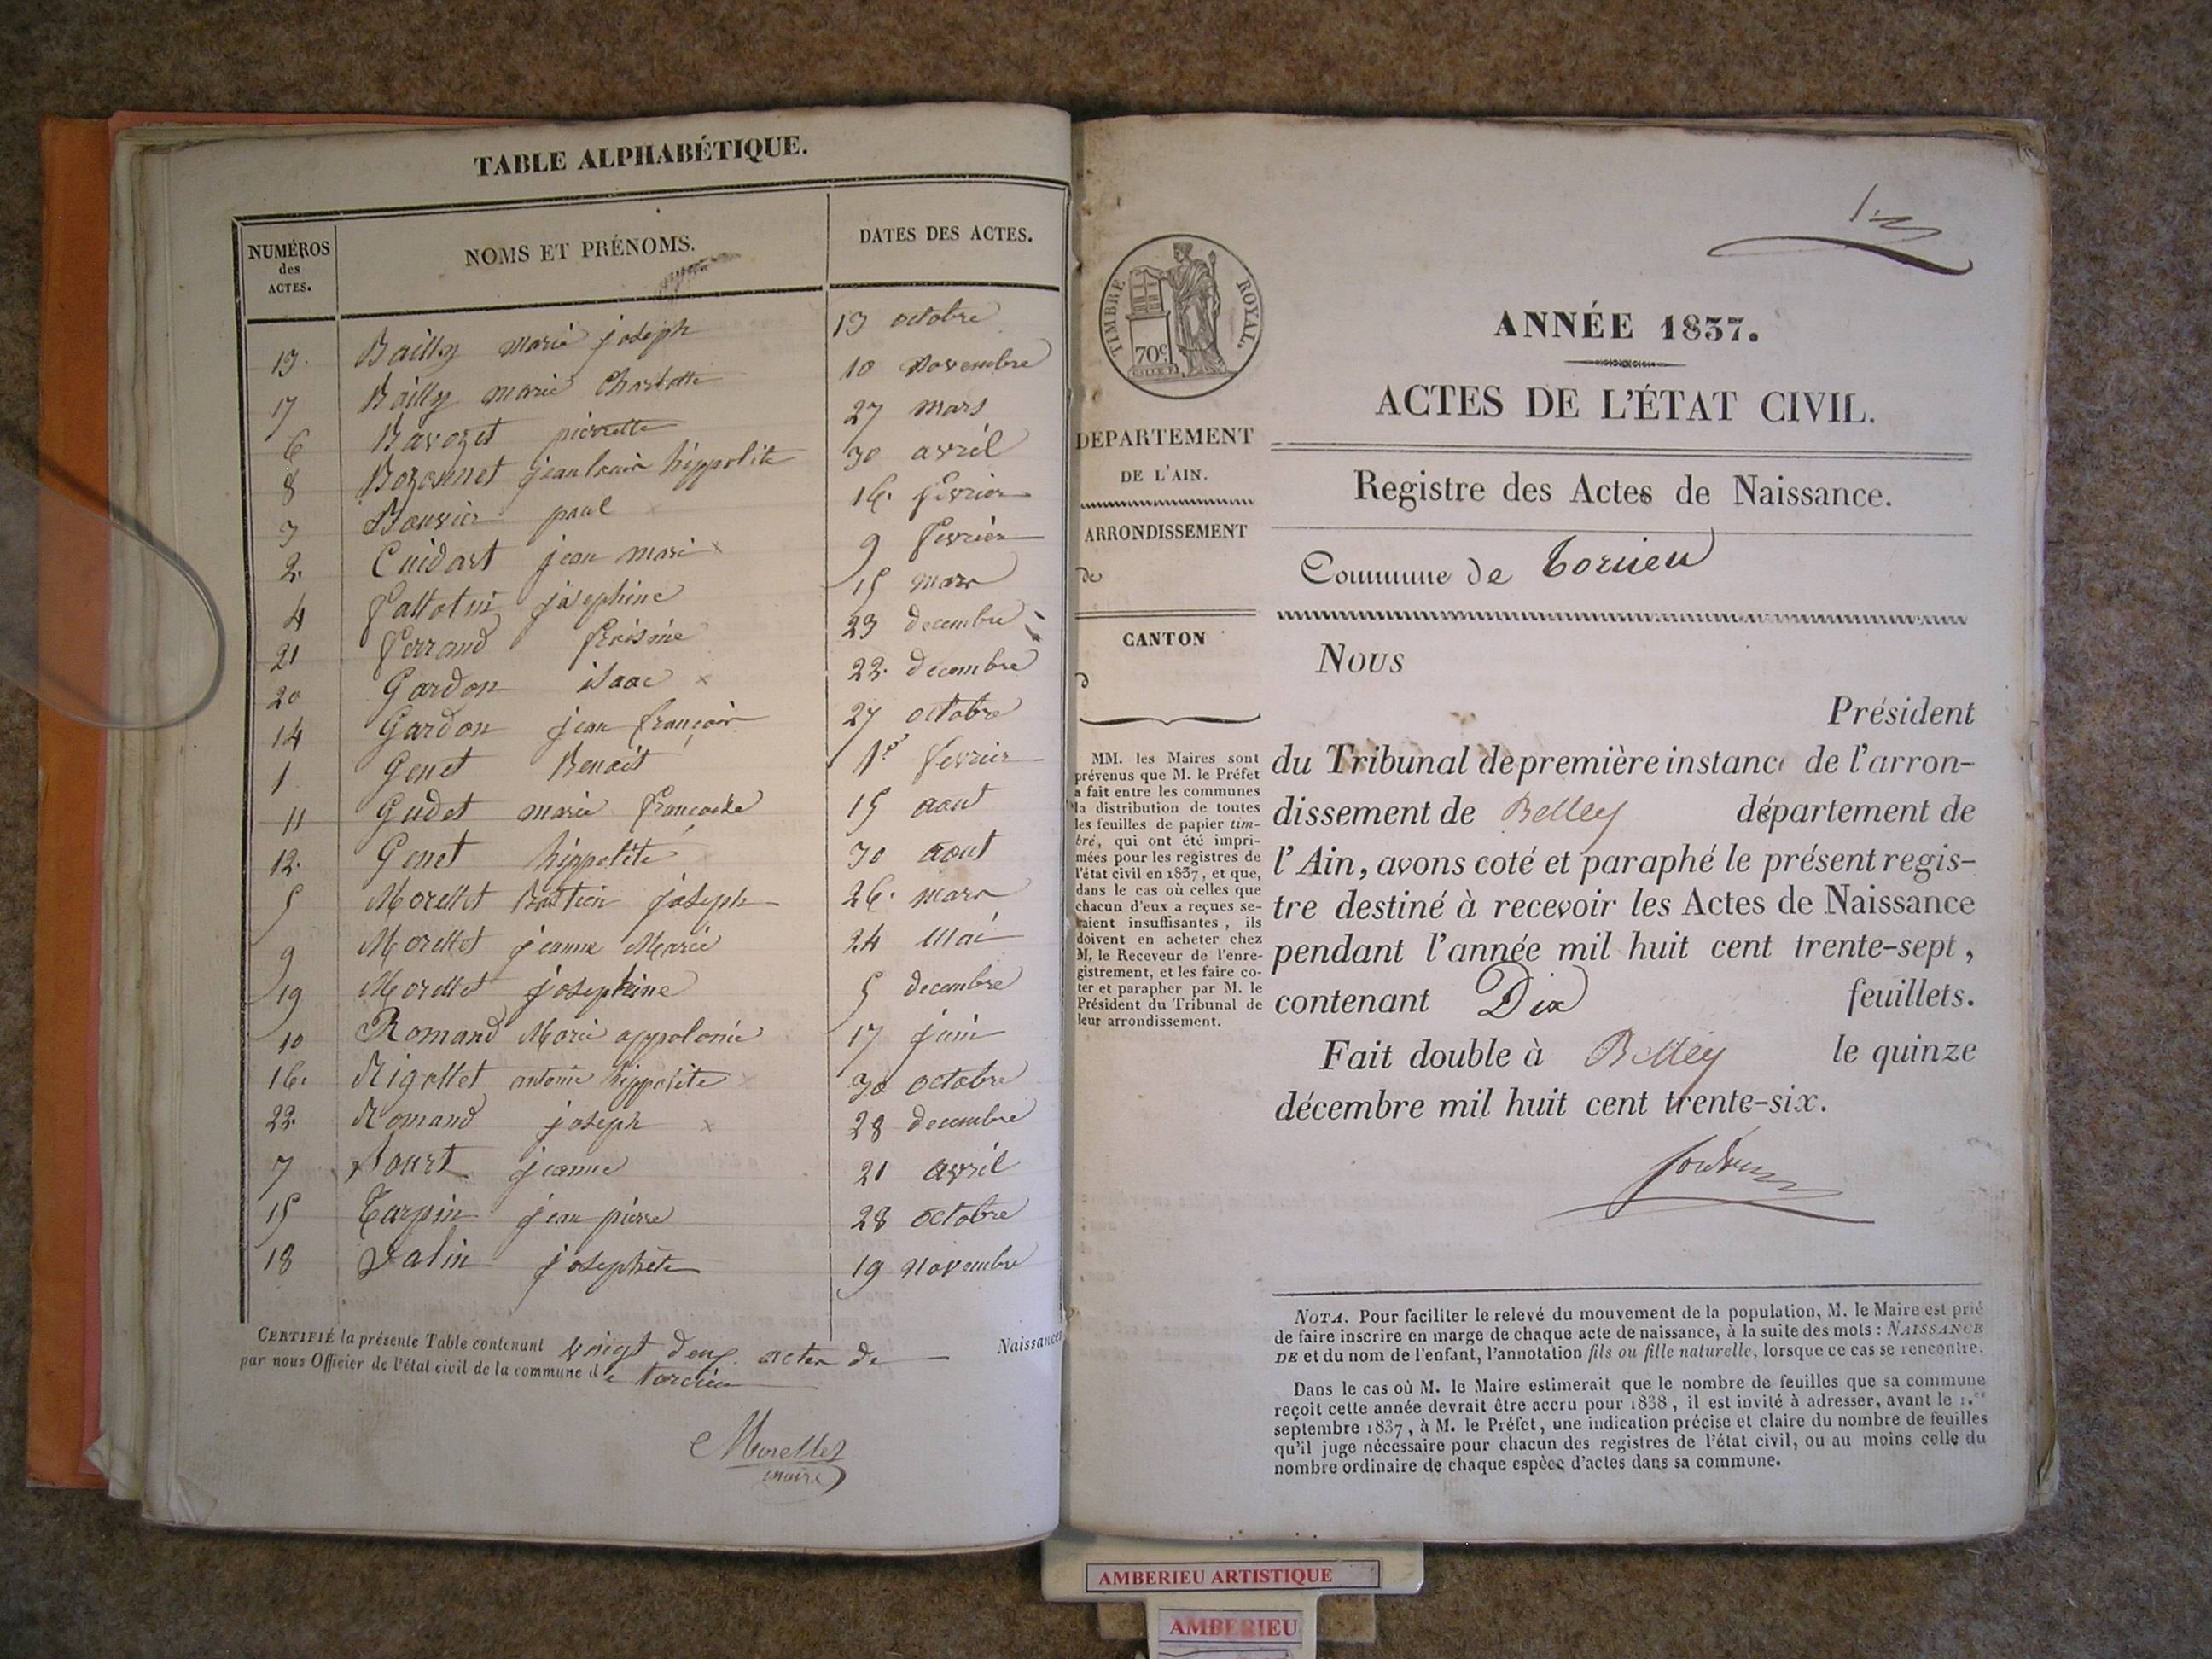 TABLE ALPHABÉTIQUE.
NUMÉROS des ACTES. NOMS ET PRÉNOMS. DATES DES ACTES.
13. Bailly marie joseph 13 octobre
17 Bailly marie Charlotte 10 novembre
6 Bavozet pierrette 27 mars
8 Bozonnet jean louis hippolite 30 avril
3 Bouvier paul 16. fevrier
2. Cuidart jean marie 9 fevrier
4 josephine 15 mars
21 Ferrand 23 decembre
20 Gardon isaac 22. decembre
14 Gardon jean françois 27 octobre
1 Genet Benoit 1er fevrier
11 Gudet marie francoise 15 aout
12. Genet hippolite 30 aout
5 Morellet Bastien joseph 26. mars
9 Morellet jeanne Marie 24 Mai
19 Morellet josephine 5 decembre
10 Romand Marie appolonie 17 juin
16. Rigollet antonie hippolite 30 octobre
22. Romand joseph 28 decembre
7 jeanne 21 avril
15 Tarpin jean pierre 28 octobre
18 Valin josephete 19 novembre
CERTIFIÉ la présente Table contenant vingt deux actes de Naissances
par nous Officier de l'état civil de la commune de torcieu
Morellet
maire
TIMBRE ROYAL.
70c.
DÉPARTEMENT
DE L'AIN.
ARRONDISSEMENT
de
CANTON
d
MM. les Maires sont
prévenus que M. le Préfet
a fait entre les communes
la distribution de toutes
les feuilles de papier tim-
bré, qui ont été impri-
mées pour les registres de
l'état civil en 1837, et que,
dans le cas où celles que
chacun d'eux a reçues se-
raient insuffisantes, ils
doivent en acheter chez
M. le Receveur de l'enre-
gistrement, et les faire co-
ter et parapher par M. le
Président du Tribunal de
leur arrondissement.
ANNÉE 1837.
ACTES DE L'ÉTAT CIVIL.
Registre des Actes de Naissance.
Commune de Torcieu
Nous
Président
du Tribunal de première instance de l'arron-
dissement de Belley département de
l'Ain, avons coté et paraphé le présent regis-
tre destiné à recevoir les Actes de Naissance
pendant l'année mil huit cent trente-sept,
contenant Dix feuillets.
Fait double à Belley le quinze
décembre mil huit cent trente-six.
NOTA. Pour faciliter le relevé du mouvement de la population, M. le Maire est prié
de faire inscrire en marge de chaque acte de naissance, à la suite des mots : NAISSANCE
DE et du nom de l'enfant, l'annotation fils ou fille naturelle, lorsque ce cas se rencontre.
Dans le cas où M. le Maire estimerait que le nombre de feuilles que sa commune
reçoit cette année devrait être accru pour 1838, il est invité à adresser, avant le 1.er
septembre 1837, à M. le Préfet, une indication précise et claire du nombre de feuilles
qu'il juge nécessaire pour chacun des registres de l'état civil, ou au moins celle du
nombre ordinaire de chaque espèce d'actes dans sa commune.
AMBERIEU ARTISTIQUE
AMBERIEU